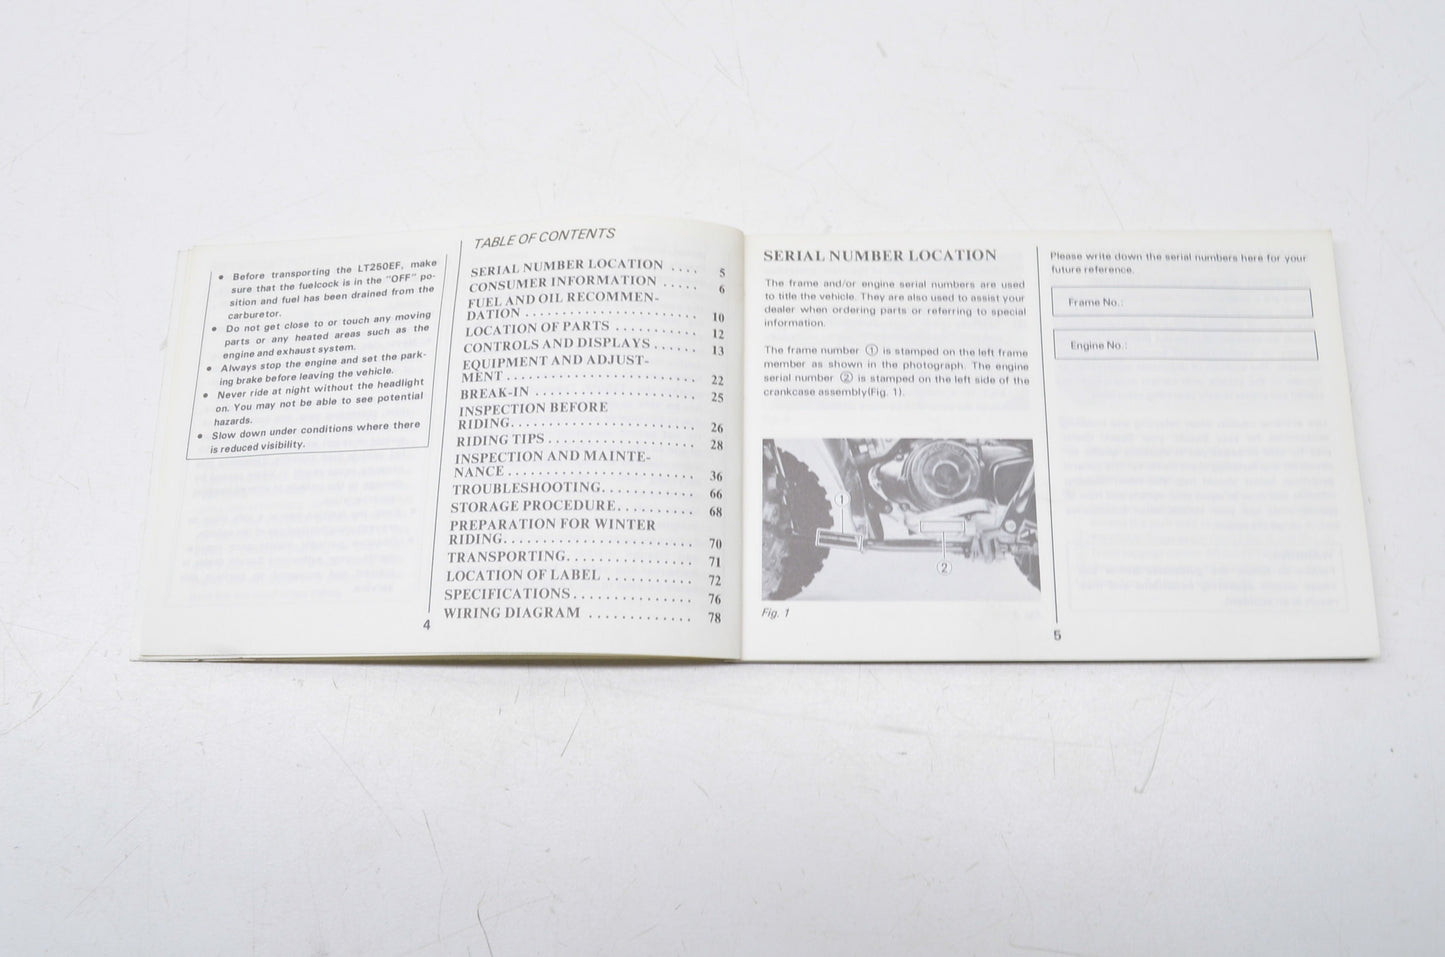 ● Before transporting the LT250EF, make
sure that the fuelcock is in the "OFF" po-
sition and fuel has been drained from the
carburetor.
● Do not get close to or touch any moving
parts or any heated areas such as the
engine and exhaust system.
● Always stop the engine and set the park-
ing brake before leaving the vehicle.
● Never ride at night without the headlight
on. You may not be able to see potential
hazards.
● Slow down under conditions where there
is reduced visibility.
TABLE OF CONTENTS
SERIAL NUMBER LOCATION .... 5
CONSUMER INFORMATION ..... 6
FUEL AND OIL RECOMMEN-
DATION ....................... 10
LOCATION OF PARTS ........... 12
CONTROLS AND DISPLAYS ...... 13
EQUIPMENT AND ADJUST-
MENT .......................... 22
BREAK-IN ...................... 25
INSPECTION BEFORE
RIDING......................... 26
RIDING TIPS .................... 28
INSPECTION AND MAINTE-
NANCE ......................... 36
TROUBLESHOOTING............ 66
STORAGE PROCEDURE.......... 68
PREPARATION FOR WINTER
RIDING.......................... 70
TRANSPORTING................. 71
LOCATION OF LABEL ............ 72
SPECIFICATIONS................ 76
WIRING DIAGRAM .............. 78
4
SERIAL NUMBER LOCATION
The frame and/or engine serial numbers are used
to title the vehicle. They are also used to assist your
dealer when ordering parts or referring to special
information.
The frame number ① is stamped on the left frame
member as shown in the photograph. The engine
serial number ② is stamped on the left side of the
crankcase assembly(Fig. 1).
①
②
Fig. 1
Please write down the serial numbers here for your
future reference.
Frame No.:
Engine No.:
5